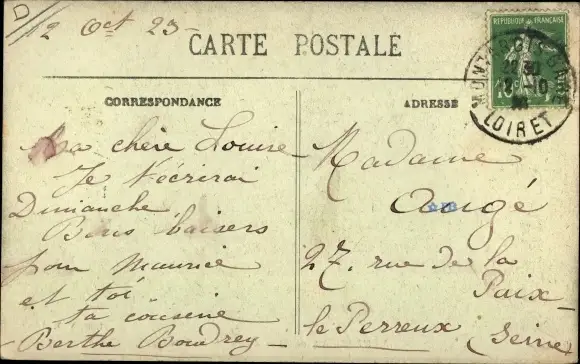 D
12 Oct 23
CARTE POSTALE
REPUBLIQUE FRANÇAISE
LOIRET
CORRESPONDANCE
Ma chère Louise
Je t'écrirai
Dimanche
Bons baisers
pour Maurice
et toi
ta cousine
Berthe Boudrey
ADRESSE
Madame
Augé
27. rue de la
Paix
le Perreux (Seine)